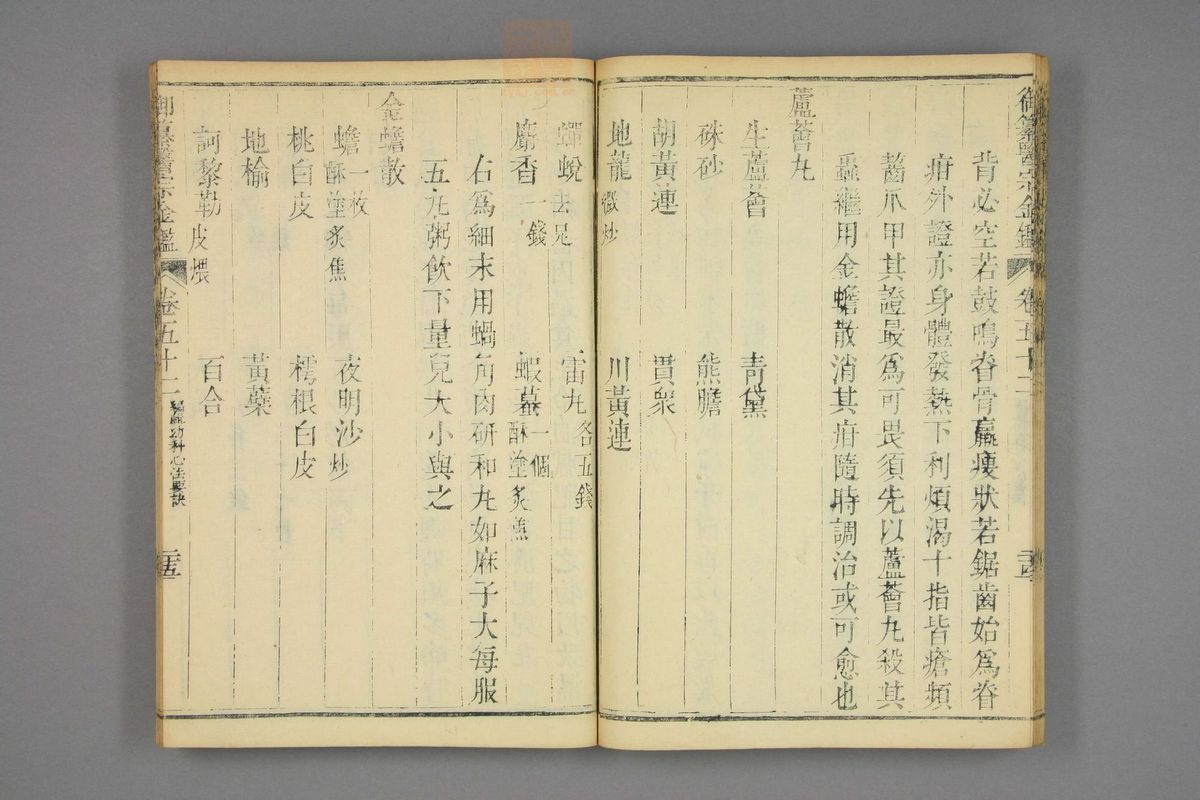 御纂醫宗金鑑 卷五十二 二十四
背必空若鼓鳴脊骨羸瘦狀若鋸齒始爲脊
疳外證亦身體發熱下利煩渴十指皆瘡頻
齧爪甲其證最爲可畏須先以蘆薈丸殺其
蟲繼用金蟾散消其疳隨時調治或可愈也
蘆薈丸
生蘆薈 青黛
硃砂 熊膽
胡黃連 貫衆
地龍微炒 川黃連
蟬蛻去足 雷丸各五錢
麝香一錢 蝦蟇一個酥塗炙焦
右爲細末用蝸角肉研和丸如麻子大每服
五丸粥飲下量兒大小與之
金蟾散
蟾一枚酥塗炙焦 夜明沙炒
桃白皮 樗根白皮
地榆 黃蘗
訶黎勒皮煨 百合
御纂醫宗金鑑 卷五十二 編輯幼科心法要訣 二十五